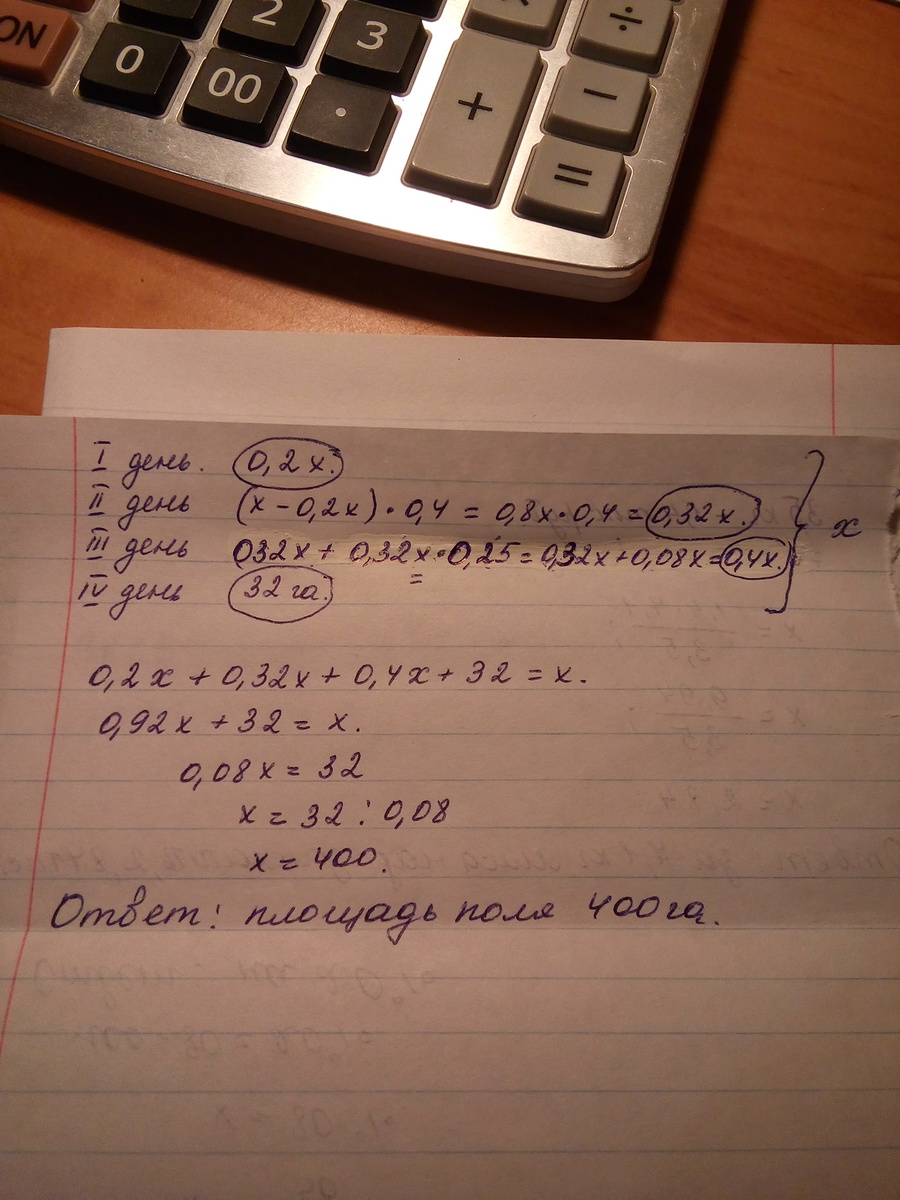 ON
2
3
÷
0
00
.
+
−
=
I день. 0,2x.
II день (x − 0,2x) · 0,4 = 0,8x · 0,4 = 0,32x.
III день 032x + 0,32x · 0,25 = 0,32x + 0,08x = 0,4x.
IV день 32 га.
x
0,2x + 0,32x + 0,4x + 32 = x.
0,92x + 32 = x.
0,08x = 32
x = 32 : 0,08
x = 400.
Ответ: площадь поля 400 га.